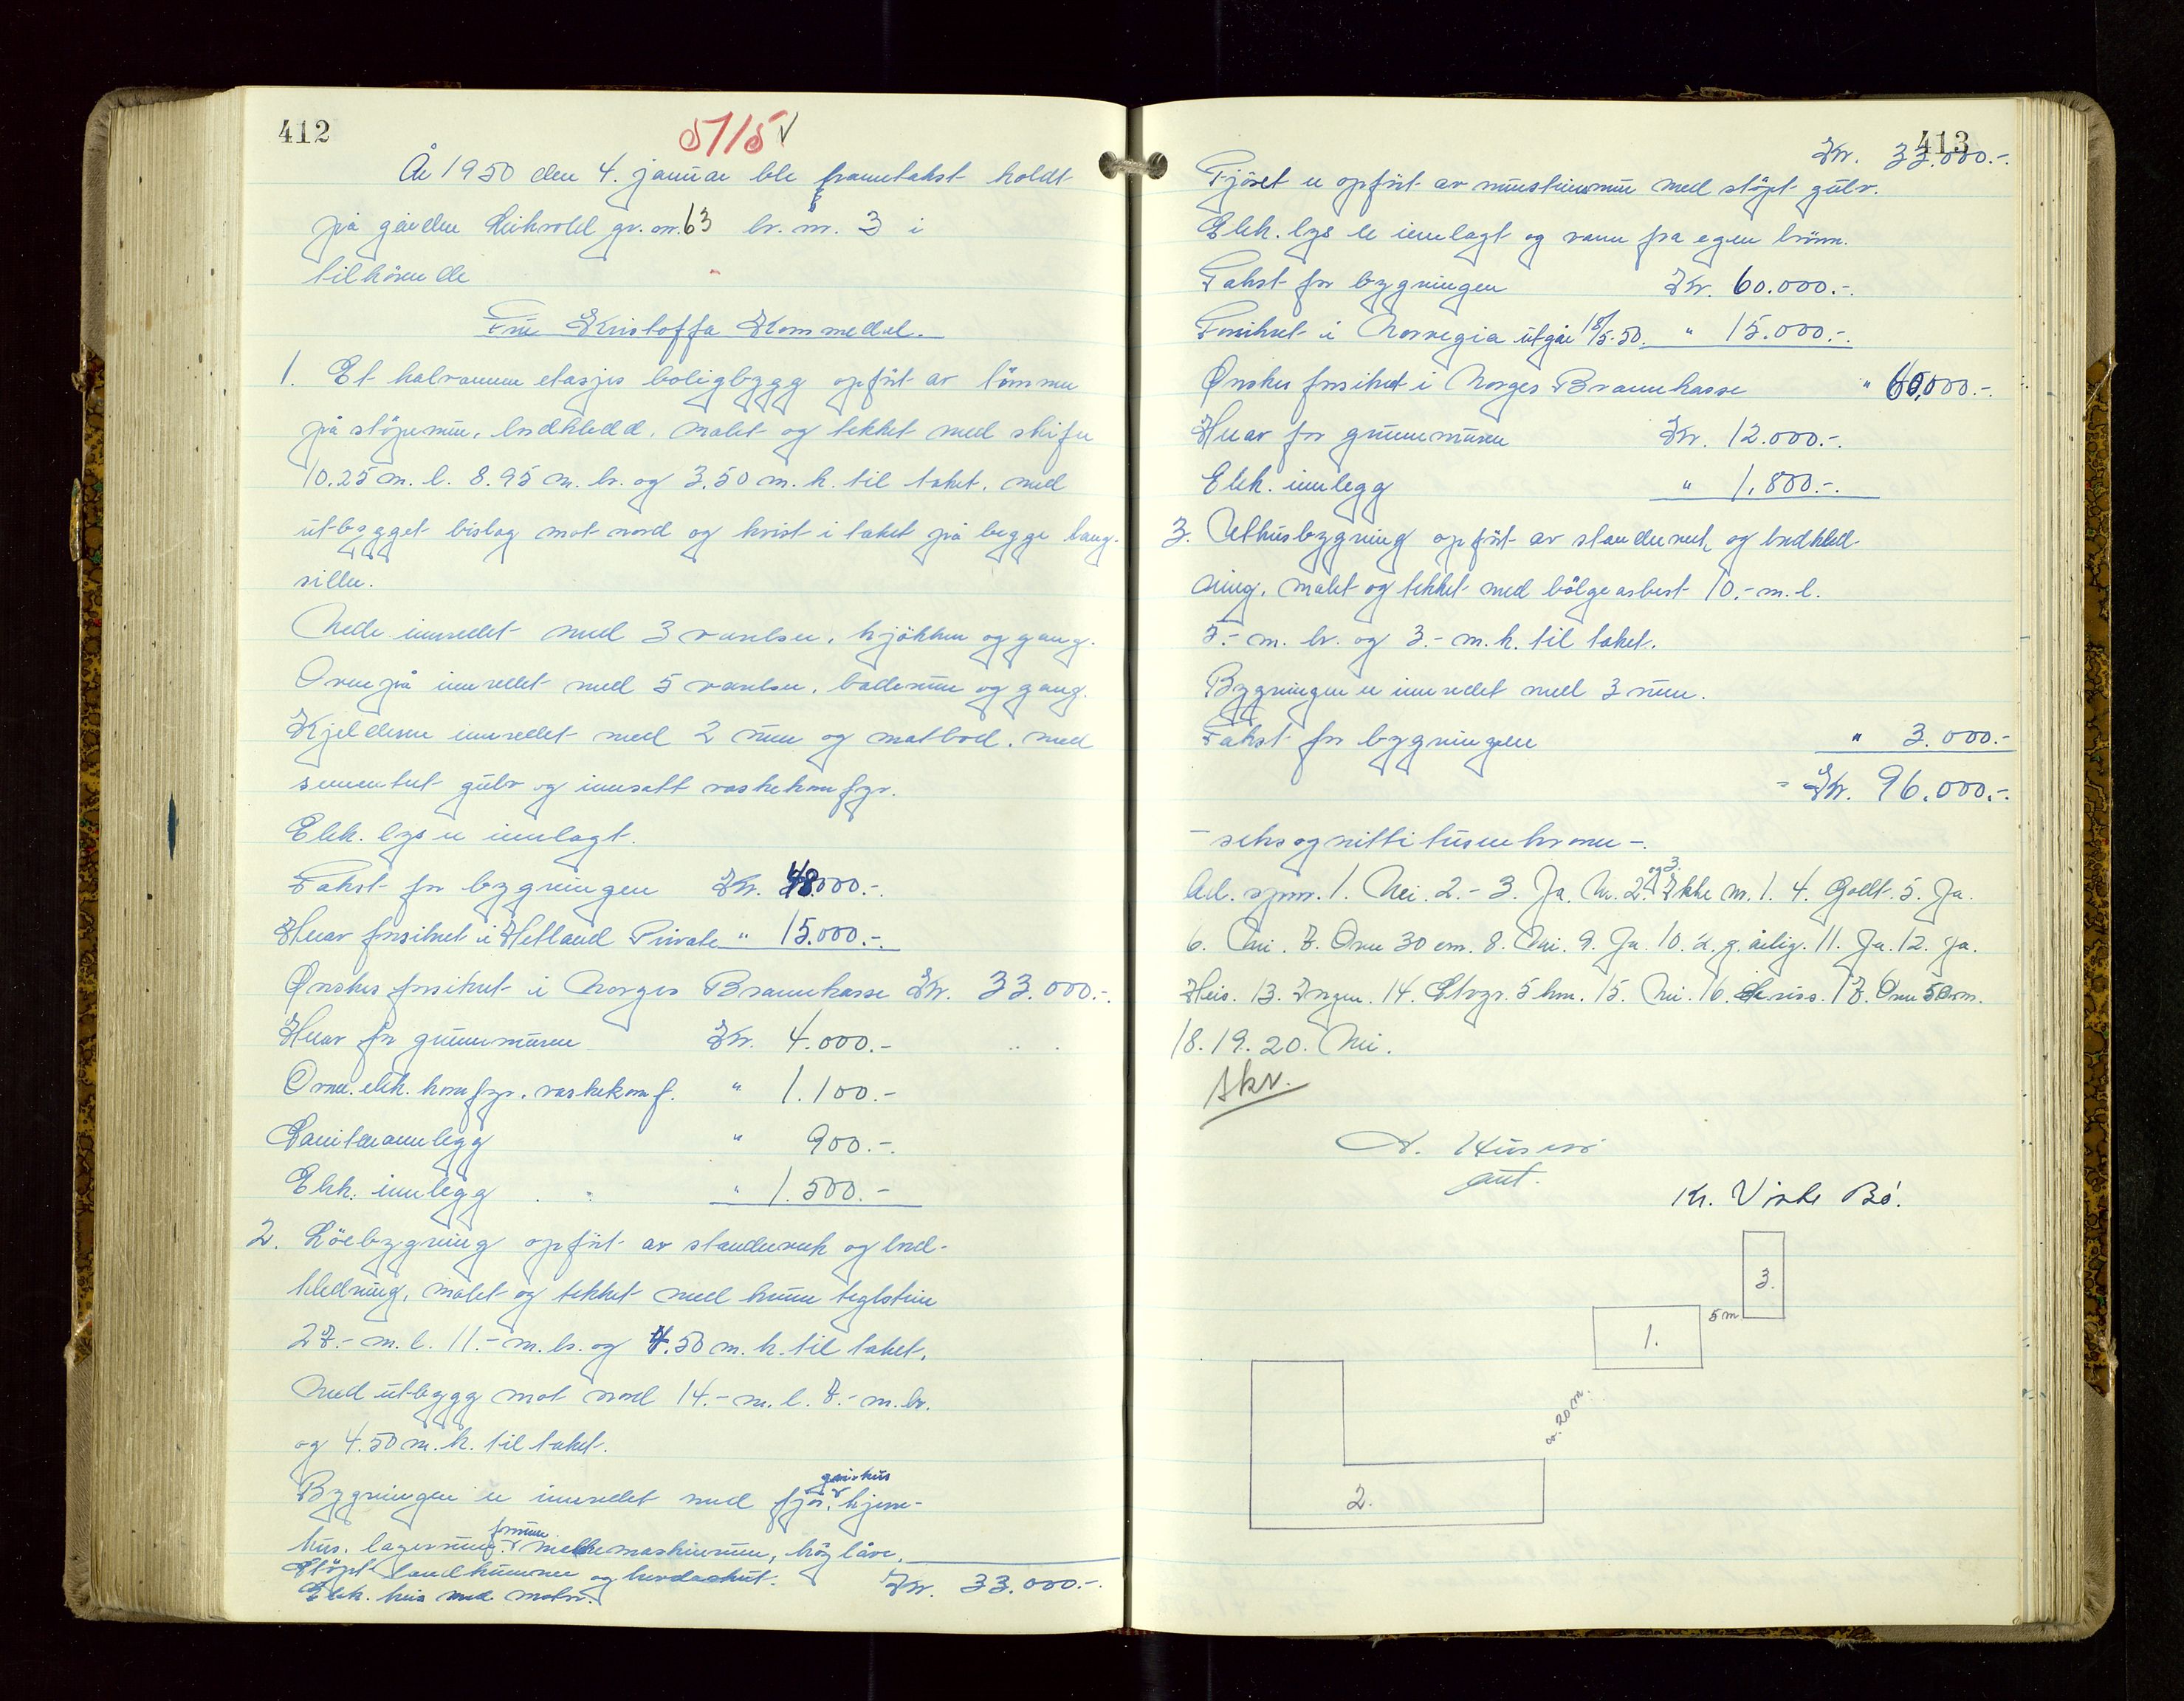 412
5115 v
År 1950 den 4. januar ble branntakst holdt
på gården Leikvoll gr. nr. 63 br. nr. 3 i
tilhörende
Fru Kristoffa Kommedal.
1. Et halvannen etasjes boligbygg opfört av tömmer
på stöpemur, bordkledd, malet og tekket med skifer
10.25 m. l. 8.95 m. br. og 3.50 m. h. til taket, med
utbygget bislag mot nord og kvist i taket på begge lang-
sider.
Nede innredet med 3 værelser, kjökken og gang.
Ovenpå innredet med 5 værelser, baderum og gang.
Kjelderen innredet med 2 rum og matbod, med
sementert gulv og innsatt vaskekomfyr.
Elek. lys er innlagt.
Takst for bygningen Kr. 48.000.-.
Herav forsikret i Hetland Private " 15.000.-.
Ønskes forsikret i Norges Brannkasse Kr. 33.000.-.
Herav for grunnmuren Kr. 4.000.-
Ovner. elek. komfyr. vaskekomf. " 1.100.-
Saniteranlegg " 900.-.
Elek. innlegg " 1.500.-
2. Löebygning opfört av stenderverk og bord-
kledning, malet og tekket med brune teglstein
27.- m. l. 11.- m. br. og 4.50 m. h. til taket,
med utbygg mot nord 14.- m. l. 7.- m. br.
og 4.50 m. h. til taket.
grisehus
Bygningen er innredet med fjös, hjene-
forrum
hus, lagerrum, melkemaskinrum, höylåve.
Stöpt landkummer og
Elek. heis med motor. Kr. 33.000.-.
413
Kr. 33.000.-.
Fjöset er opfört av murstensmur med stöpt gulv.
Elek. lys er innlagt og vann fra egen brönn.
Takst for bygningen Kr. 60.000.-.
Forsikret i Norvegia utgår 15/5-50. " 15.000.-.
Ønskes forsikret i Norges Brannkasse " 60.000.-.
Herav for grunnmuren Kr. 12.000.-.
Elek. innlegg " 1.800.-.
3. Uthusbygning opfört av stenderverk og bordkled-
ning, malet og tekket med bölgeasbest 10.- m. l.
5.- m. br. og 3.- m. h. til taket.
Bygningen er innredet med 3 rum.
Takst for bygningen " 3.000.-
- Kr. 96.000.-.
- seksognitti tusen kroner -.
og 3.
Ad. spm. 1. Nei. 2.- 3. Ja. Nr. 2. Ikke nr. 1. 4. Godt. 5. Ja.
6. Nei. 7. Over 30 cm. 8. Nei. 9. Ja. 10. 2. g. årlig. 11. Ja. 12. Ja.
Heis. 13. Ingen. 14. 5 km. 15. Nei. 16. Se riss. 17. Over 50 cm.
18. 19. 20. Nei.
skr.
Kr. Viste Bö.
3.
5 m
1.
ca. 20 m.
2.